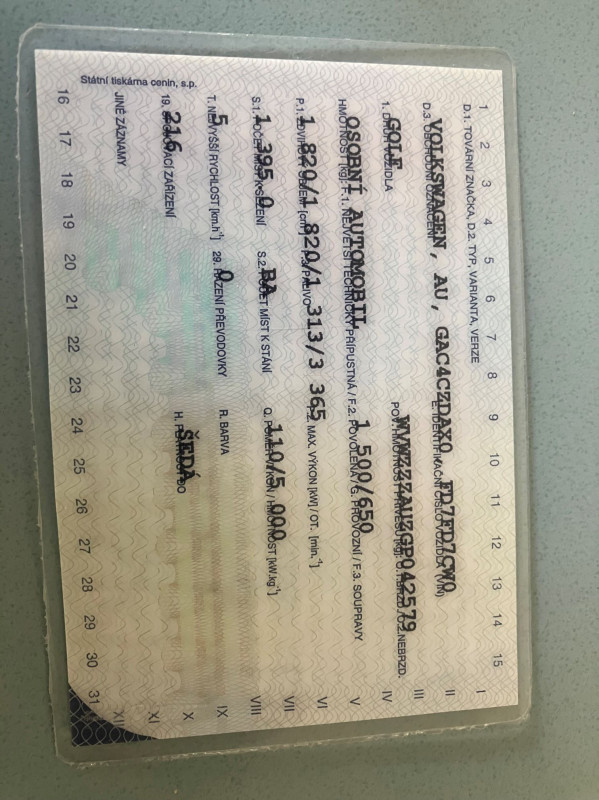 1 2 3 4 5 6 7 8 9 10 11 12 13 14 15 I
D.1. TOVÁRNÍ ZNAČKA, D.2. TYP, VARIANTA, VERZE
VOLKSWAGEN, AU, GAC4CZDAX0 FD7FD7CW0
D.3. OBCHODNÍ OZNAČENÍ E. IDENTIFIKAČNÍ ČÍSLO VOZIDLA (VIN)
GOLF WVWZZZAUZGP042579
1. DRUH VOZIDLA POV. HMOTNOST PŘÍVĚSU [kg]: O.1.BRZD./O.2.NEBRZD.
OSOBNÍ AUTOMOBIL 1 500/650
HMOTNOST [kg]: F.1. NEJVĚTŠÍ TECHNICKY PŘÍPUSTNÁ / F.2. POVOLENÁ / G. PROVOZNÍ / F.3. SOUPRAVY
1 820/1 820/1 313/3 365
P.1. ZDVIHOVÝ OBJEM [cm³] P.3. PALIVO P.2. MAX. VÝKON [kW] / OT. [min.⁻¹]
1 395,0 BA 110/5 000
S.1. POČET MÍST K SEZENÍ S.2. POČET MÍST K STÁNÍ Q. POMĚR VÝKON / HMOTNOST [kW.kg⁻¹]
5 0
T. NEJVYŠŠÍ RYCHLOST [km.h⁻¹] 29. ŘAZENÍ PŘEVODOVKY R. BARVA
216 ŠEDÁ
19. SPOJOVACÍ ZAŘÍZENÍ H. PLATNOST DO
JINÉ ZÁZNAMY
Státní tiskárna cenin, s.p.
II III IV V VI VII VIII IX X XI XII
16 17 18 19 20 21 22 23 24 25 26 27 28 29 30 31